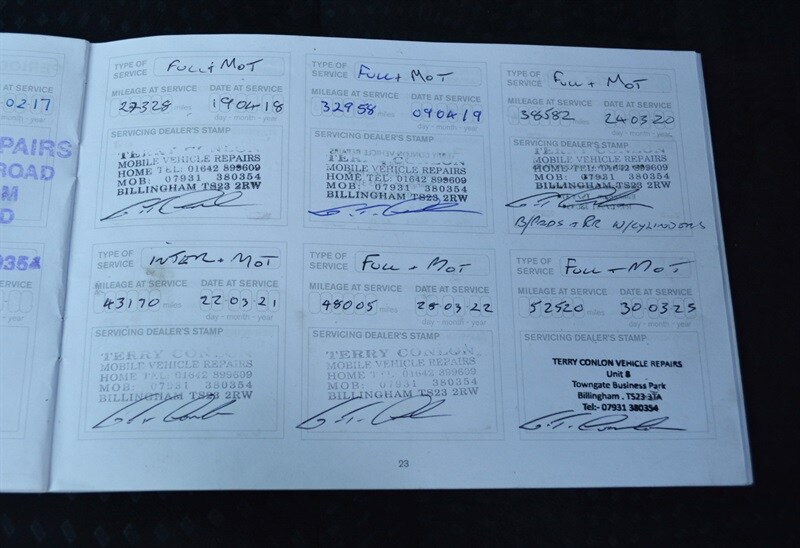 0217
PAIRS
ROAD
M
D
TYPE OF SERVICE FULL + MOT
MILEAGE AT SERVICE DATE AT SERVICE
27328 miles 190418
day - month - year
SERVICING DEALER'S STAMP
TERRY CONLON
MOBILE VEHICLE REPAIRS
HOME TEL: 01642 899609
MOB: 07931 380354
BILLINGHAM TS23 2RW
TYPE OF SERVICE FULL + MOT
MILEAGE AT SERVICE DATE AT SERVICE
32958 090419
day - month - year
SERVICING DEALER'S STAMP
MOBILE VEHICLE REPAIRS
HOME TEL: 01642 899609
MOB: 07931 380354
BILLINGHAM TS23 2RW
TYPE OF SERVICE FULL + MOT
MILEAGE AT SERVICE DATE AT SERVICE
38582 240320
day - month - year
SERVICING DEALER'S STAMP
MOBILE VEHICLE REPAIRS
HOME TEL: 01642 899609
MOB: 07931 380354
BILLINGHAM TS23 2RW
B/PADS + RR W/CYLINDERS
TYPE OF SERVICE INTER + MOT
MILEAGE AT SERVICE DATE AT SERVICE
43170 miles 22-03-21
day - month - year
SERVICING DEALER'S STAMP
TERRY CONLON
MOBILE VEHICLE REPAIRS
HOME TEL: 01642 899609
MOB: 07931 380354
BILLINGHAM TS23 2RW
TYPE OF SERVICE FULL + MOT
MILEAGE AT SERVICE DATE AT SERVICE
48005 03-22
day - month - year
SERVICING DEALER'S STAMP
TERRY CONLON
MOBILE VEHICLE REPAIRS
HOME TEL: 01642 899609
MOB: 07931 380354
BILLINGHAM TS23 2RW
TYPE OF SERVICE FULL + MOT
MILEAGE AT SERVICE DATE AT SERVICE
52520 30-03-25
day - month - year
SERVICING DEALER'S STAMP
TERRY CONLON VEHICLE REPAIRS
Unit 8
Towngate Business Park
Billingham . TS23 3TA
Tel:- 07931 380354
23